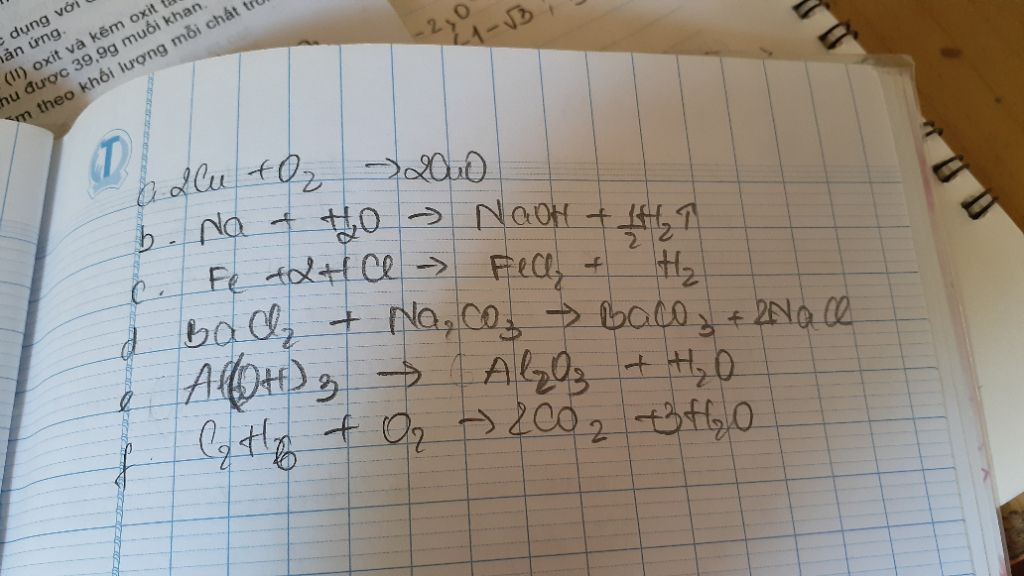 c dụng với
ản ứng.
(II) oxit và kẽm oxit tá
hu được 39,9g muối khan.
m theo khối lượng mỗi chất tro
-2,0
-1-√3
T
a. 2Cu + O₂ → 2CuO
b. Na + H₂O → NaOH + 1/2 H₂↑
c. Fe + 2HCl → FeCl₂ + H₂
d BaCl₂ + Na₂CO₃ → BaCO₃ + 2NaCl
e Al(OH)₃ → Al₂O₃ + H₂O
f. C₂H₆ + O₂ → 2CO₂ + 3H₂O